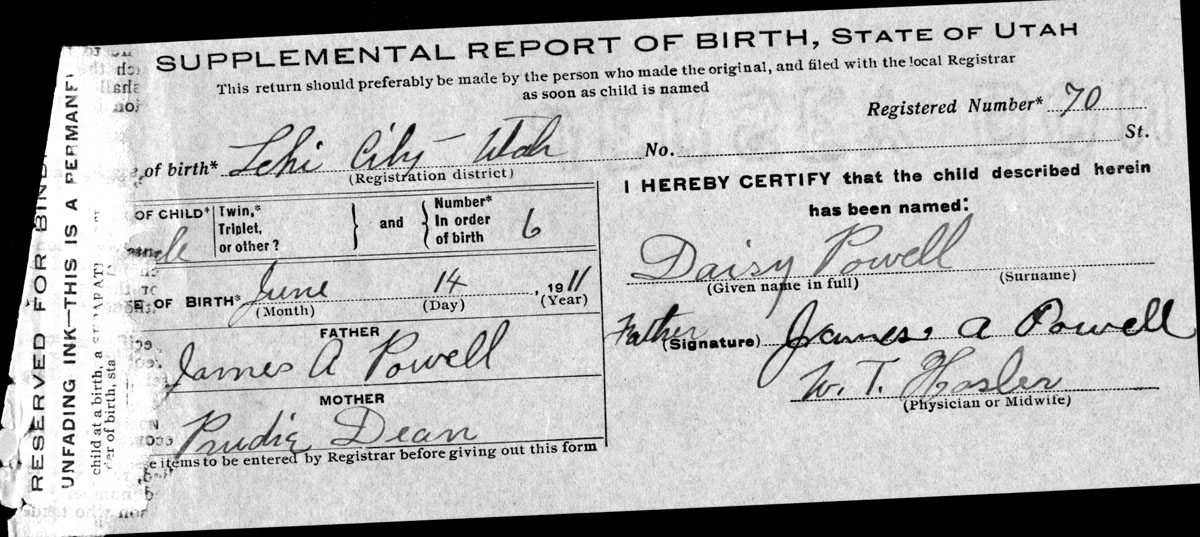 SUPPLEMENTAL REPORT OF BIRTH, STATE OF UTAH
This return should preferably be made by the person who made the original, and filed with the local Registrar
as soon as child is named
Registered Number* 70
of birth* Lehi City Utah No. St.
(Registration district)
OF CHILD* Twin,* Triplet, or other? } and { Number* In order of birth 6
OF BIRTH* June 14, 1911
(Month) (Day) (Year)
FATHER
James A Powell
MOTHER
Prudie Dean
items to be entered by Registrar before giving out this form
I HEREBY CERTIFY that the child described herein
has been named:
Daisy Powell
(Given name in full) (Surname)
Father (Signature) James A Powell
W. T. Hasler
(Physician or Midwife)
RESERVED FOR
UNFADING INK—THIS IS A
child at a birth, a
of birth,